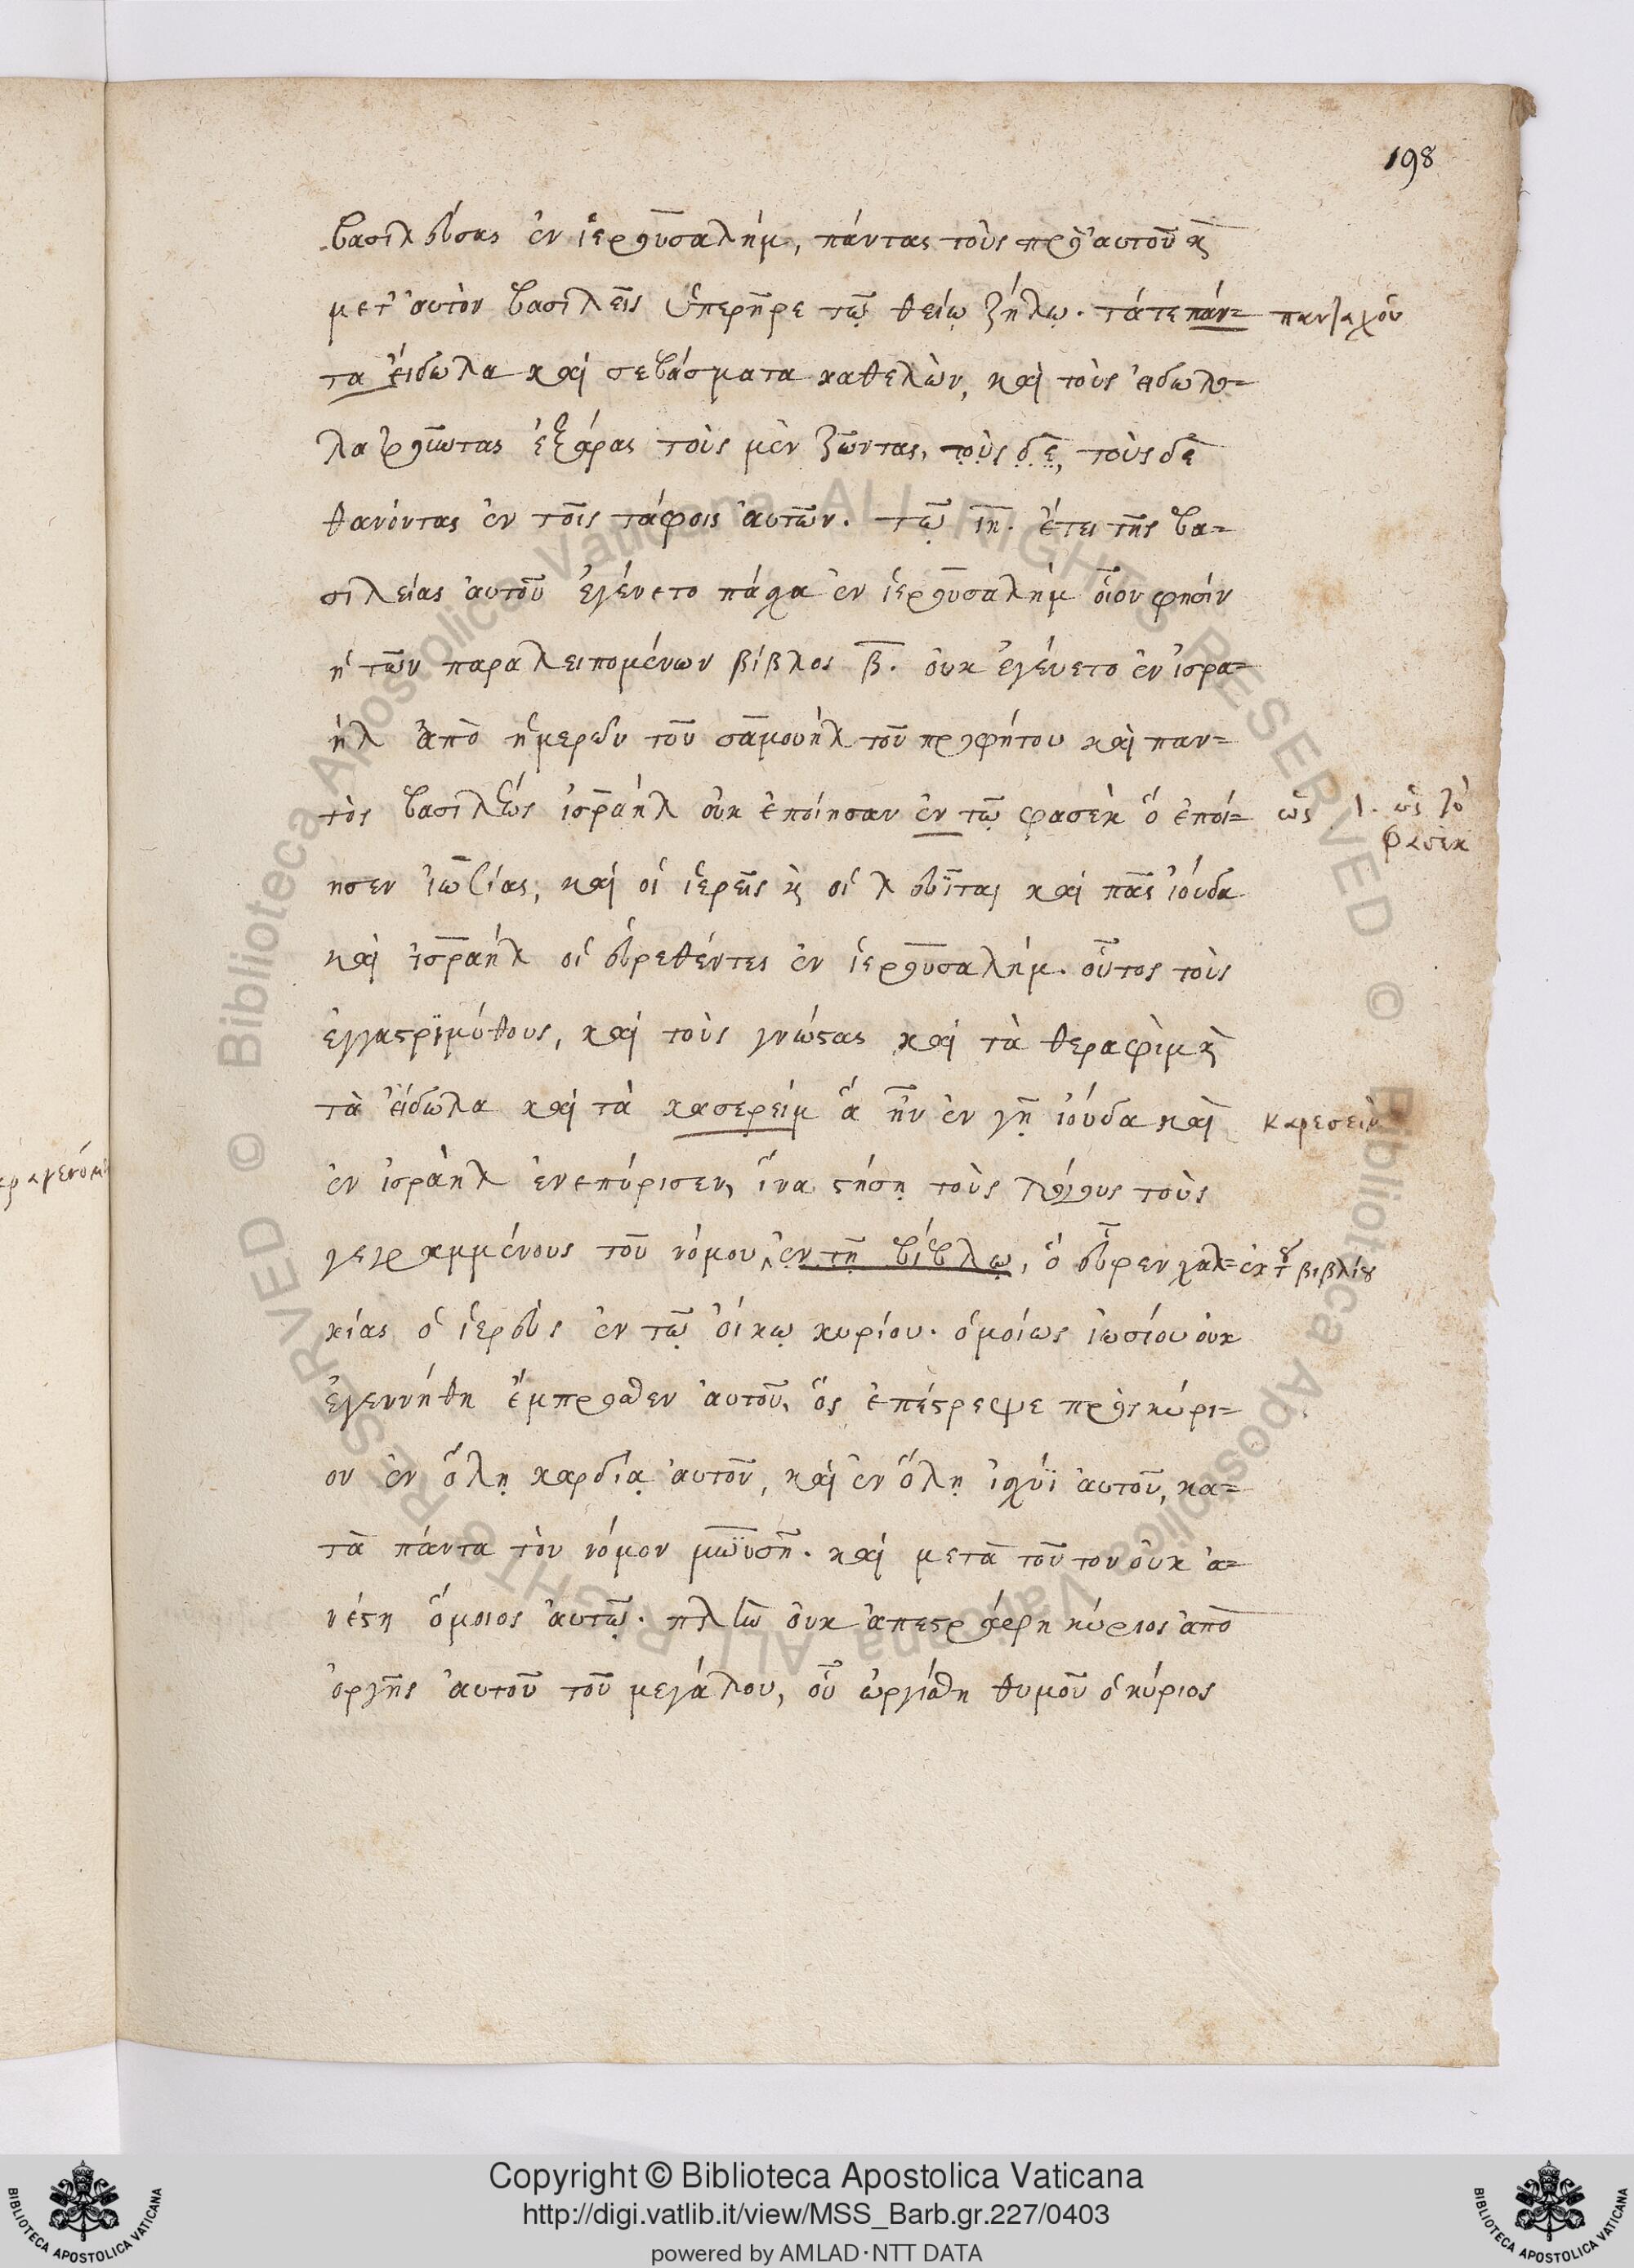 198
βασιλεύσας ἐν ἱερουσαλήμ, πάντας τοὺς πρὸ αὐτοῦ κ̀
μετ' αὐτὸν βασιλεῖς ὑπερῆρε τῷ θείῳ ζήλῳ. τάτε πάν=
πανταχοῦ
τα εἴδωλα καὶ σεβάσματα καθελὼν, καὶ τοὺς εἰδωλο=
λατροῦντας ἐξάρας τοὺς μὲν ζῶντας, τοὺς δὲ, τοὺς δὲ
θανόντας ἐν τοῖς τάφοις αὐτῶν. τῷ ιη. ἔτει τῆς βα=
σιλείας αὐτοῦ ἐγένετο πάσχα ἐν ἱερουσαλήμ οἷον φησὶν
ἡ τῶν παραλειπομένων βίβλος β. οὐκ ἐγένετο ἐν ἰσρα=
ήλ ἀπὸ ἡμερῶν τοῦ σαμουήλ τοῦ προφήτου καὶ παν=
τὸς βασιλέως ἰσραήλ οὐκ ἐποίησαν ἐν τῷ φασὲκ ὃ ἐποί=
ὡς ὡς τὸ
φασὲκ
ησεν ἰωσίας, καὶ οἱ ἱερεῖς κ̀ οἱ λευῖται καὶ πᾶς ἰούδα
καὶ ἰσραήλ οἱ εὑρεθέντες ἐν ἱερουσαλήμ. οὗτος τοὺς
ἐγγαστριμύθους, καὶ τοὺς γνώστας καὶ τὰ θεραφὶμ κ̀
τὰ εἴδωλα καὶ τὰ κασερείμ ἃ ἦν ἐν γῇ ἰούδα καὶ
καρεσείμ
ἐν ἰσραὴλ ἐνεπύρισεν, ἵνα στήσῃ τοὺς λόγους τοὺς
γεγραμμένους τοῦ νόμου, ἐν τῇ βίβλῳ, ὃ εὗρεν χαλ=
ἐκ τοῦ βιβλίου
κίας ὁ ἱερεὺς ἐν τῷ οἴκῳ κυρίου. ὁμοίως ἰωσίου οὐκ
ἐγεννήθη ἔμπροσθεν αὐτοῦ, ὃς ἐπέστρεψε πρὸς κύρι=
ον ἐν ὅλῃ καρδίᾳ αὐτοῦ, καὶ ἐν ὅλῃ ἰσχύϊ αὐτοῦ, κα=
τὰ πάντα τὸν νόμον μωϋσῆ. καὶ μετὰ τοῦτον οὐκ ἀ=
νέστη ὅμοιος αὐτῷ. πλὴν οὐκ ἀπεστράφη κύριος ἀπὸ
ὀργῆς αὐτοῦ τοῦ μεγάλου, οὗ ὠργίσθη θυμοῦ ὁ κύριος
Copyright © Biblioteca Apostolica Vaticana
http://digi.vatlib.it/view/MSS_Barb.gr.227/0403
powered by AMLAD·NTT DATA
BIBLIOTECA APOSTOLICA VATICANA
BIBLIOTECA APOSTOLICA VATICANA
© Biblioteca Apostolica Vaticana ALL RIGHTS RESERVED
© Biblioteca Apostolica Vaticana ALL RIGHTS RESERVED